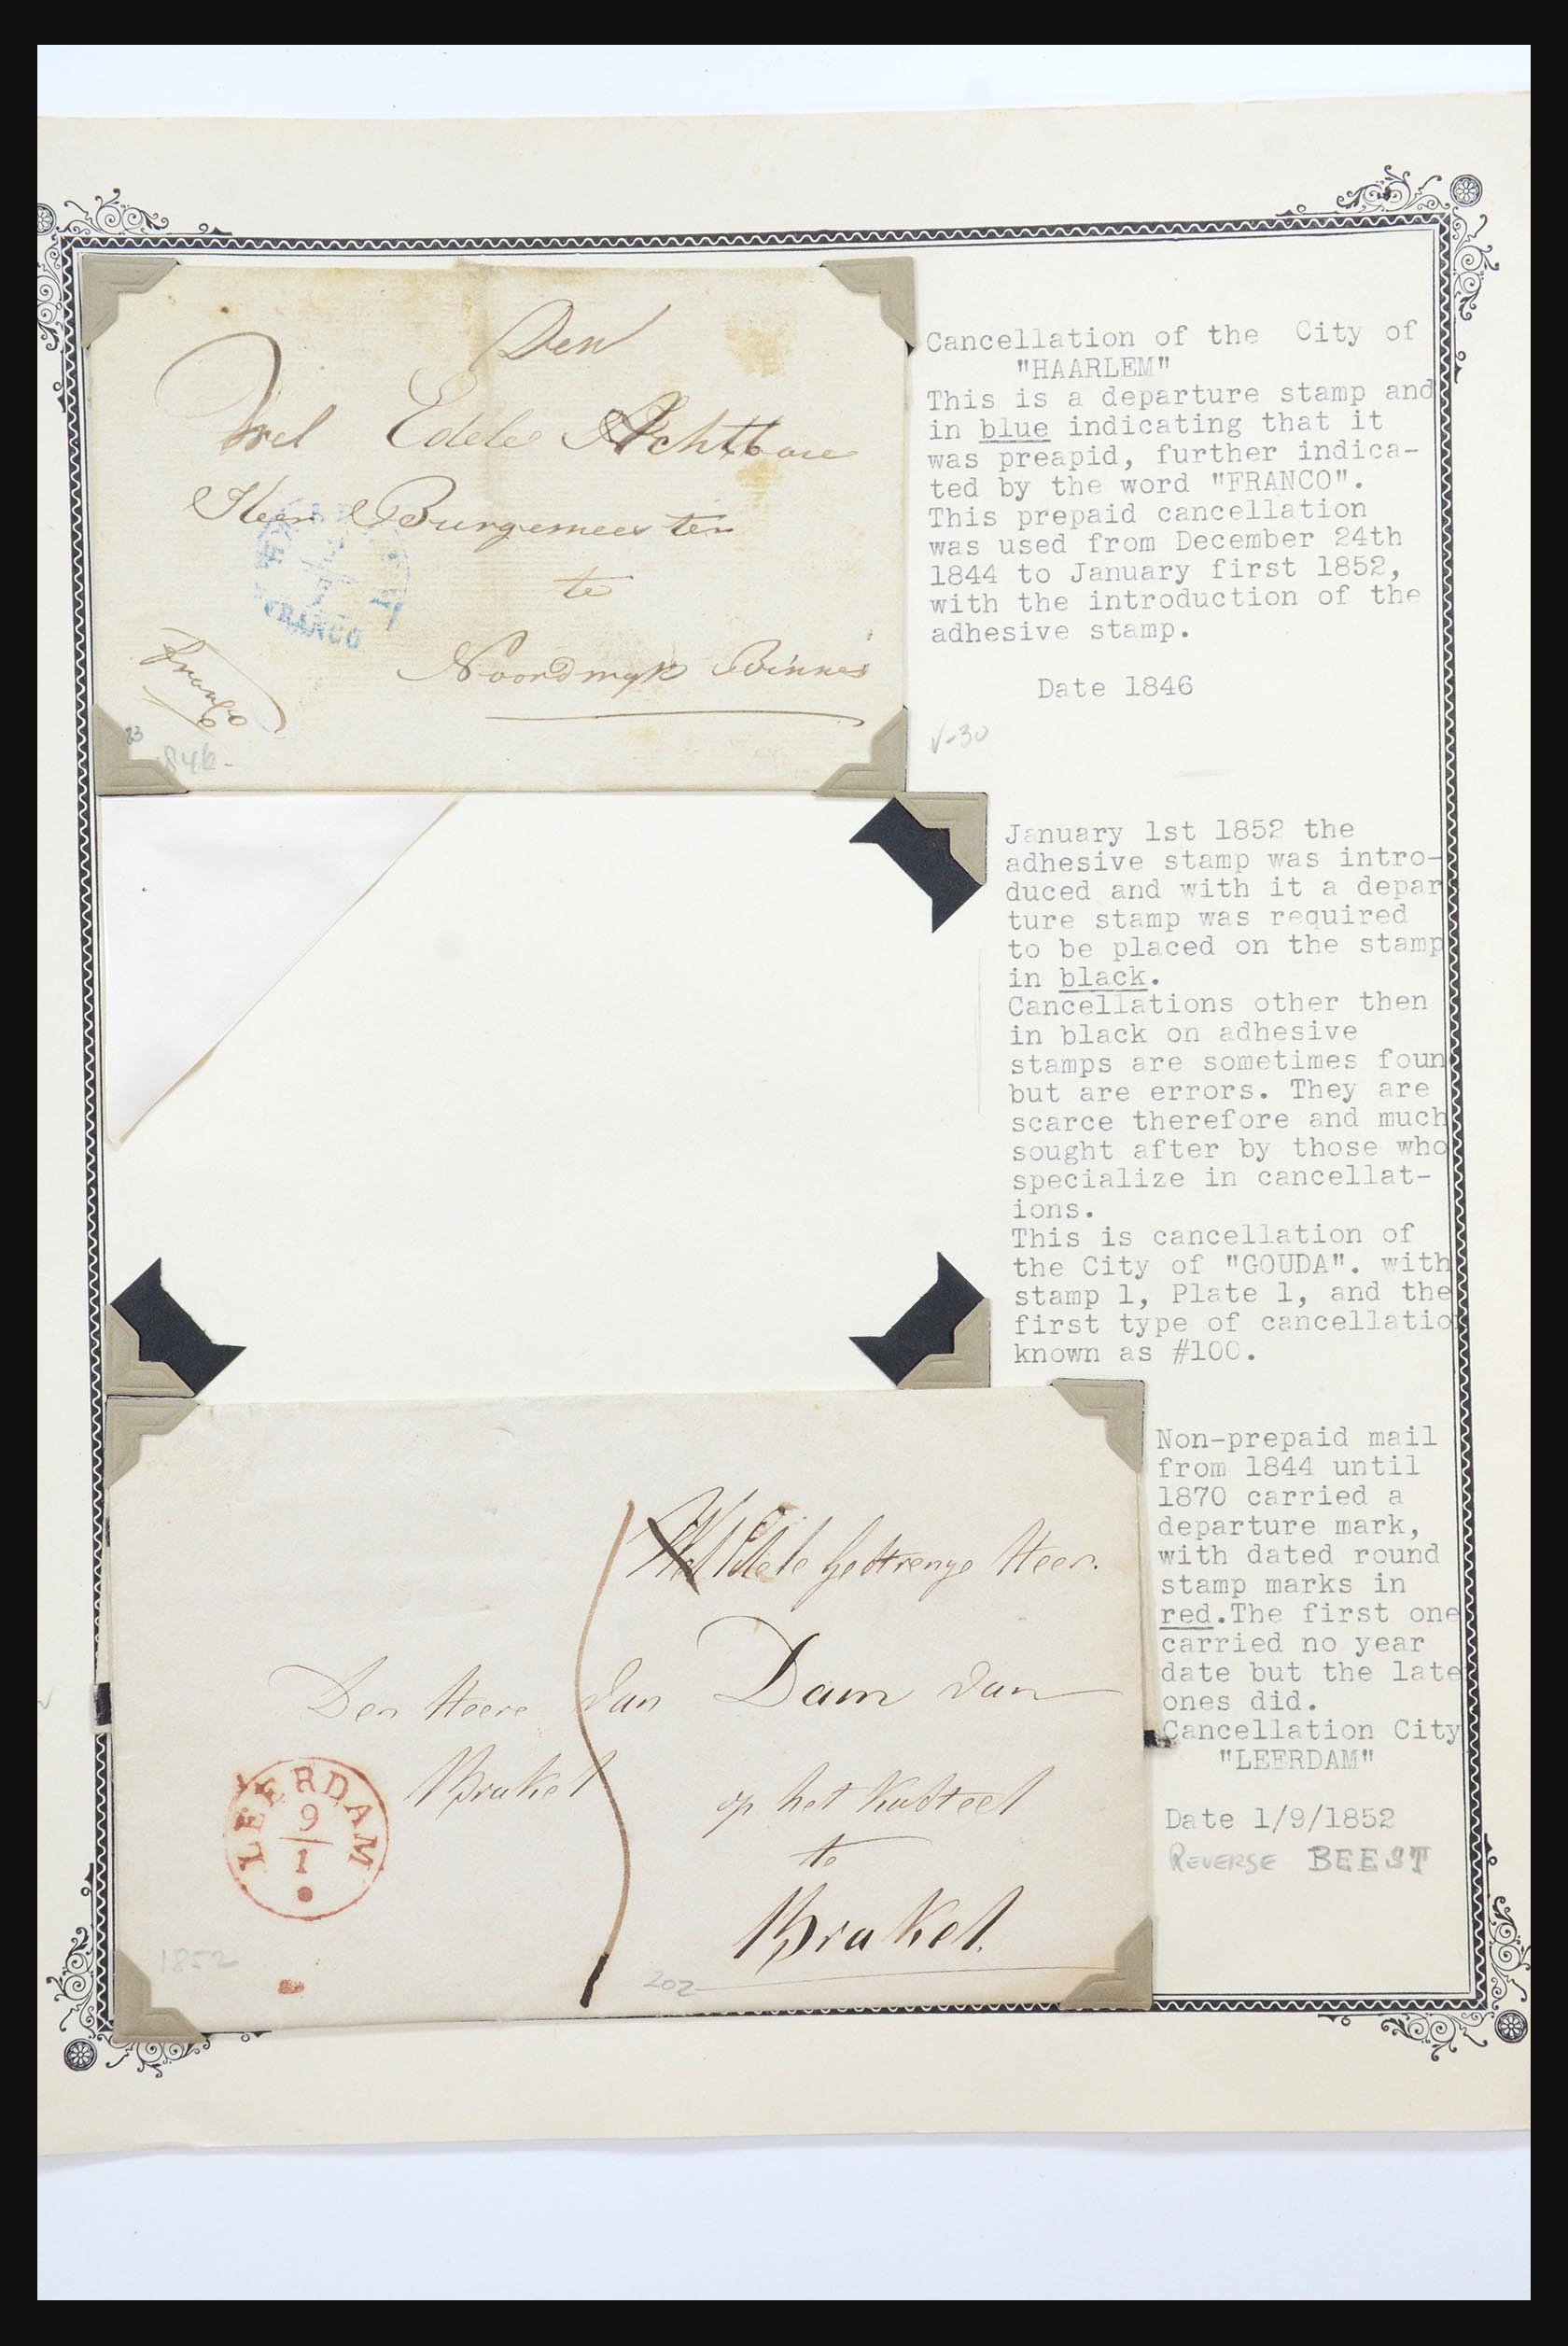 Den
Wel Edele Achtbare
Heer Burgemeester
te
Noordwyk Binnen
FRANCO
Franco
23
Cancellation of the City of
"HAARLEM"
This is a departure stamp and
in blue indicating that it
was preapid, further indica-
ted by the word "FRANCO".
This prepaid cancellation
was used from December 24th
1844 to January first 1852,
with the introduction of the
adhesive stamp.
Date 1846
V-30
January 1st 1852 the
adhesive stamp was intro-
duced and with it a depar
ture stamp was required
to be placed on the stamp
in black.
Cancellations other then
in black on adhesive
stamps are sometimes foun
but are errors. They are
scarce therefore and much
sought after by those who
specialize in cancellat-
ions.
This is cancellation of
the City of "GOUDA". with
stamp 1, Plate 1, and the
first type of cancellatio
known as #100.
Edele Gestrenge Heer.
Den Heere Van Dam Van
Brakel
op het Kasteel
te
Brakel.
LEERDAM
9
1
1852
202
Non-prepaid mail
from 1844 until
1870 carried a
departure mark,
with dated round
stamp marks in
red.The first one
carried no year
date but the late
ones did.
Cancellation City
"LEERDAM"
Date 1/9/1852
REVERSE BEEST